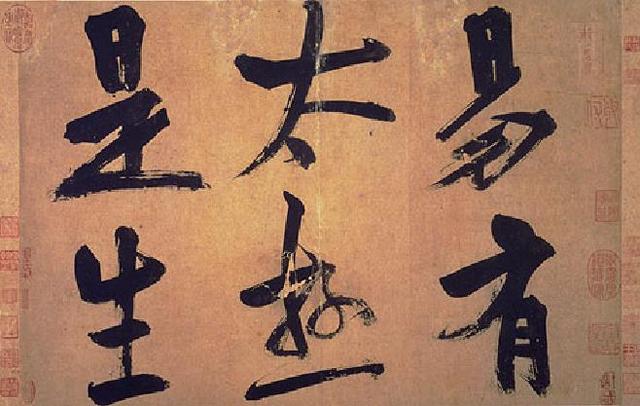 易有
太極
是生